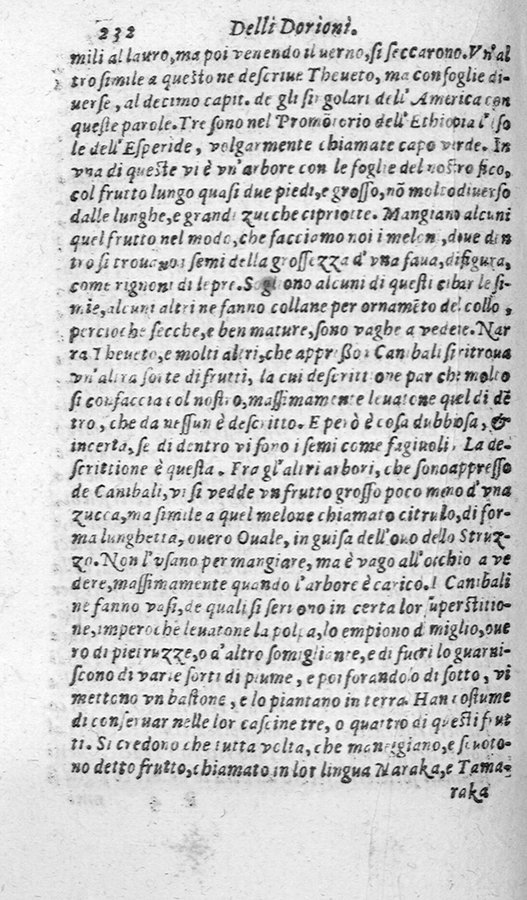 232 Delli Dorioni.
mili al lauro, ma poi venendo il uerno, si seccarono. Vn'al
tro simile a questo ne descriue Theueto, ma con foglie di-
uerse, al decimo capit. de gli singolari dell'America con
queste parole. Tre sono nel Promõtorio dell'Ethiopia l'iso
le dell'Esperide, volgarmente chiamate capo verde. In
vna di queste vi è vn'arbore con le foglie del nostro fico,
col frutto lungo quasi due piedi, e grosso, nõ molto diuerso
dalle lunghe, e grandi zucche cipriotte. Mangiano alcuni
quel frutto nel modo, che facciamo noi i meloni, doue den
tro si trouano i semi della grossezza d'vna faua, di figura,
come rignoni di lepre. Sogliono alcuni di questi cibar le si-
mie, alcuni altri ne fanno collane per ornamẽto del collo,
percioche secche, e ben mature, sono vaghe a vedere. Nar
ra Theueto, e molti altri, che appresso i Canibali si ritroua
vn'altra sorte di frutti, la cui descrittione par che molto
si confaccia col nostro, massimamente leuatone quel di dẽ
tro, che da nessun è descritto. E però è cosa dubbiosa, &
incerta, se di dentro vi sono i semi come fagiuoli. La de-
scrittione è questa. Fra gl'altri arbori, che sono appresso
de Canibali, vi si vedde vn frutto grosso poco meno d'vna
zucca, ma simile a quel melone chiamato citrulo, di for-
ma lunghetta, ouero Ouale, in guisa dell'ouo dello Struz-
zo. Non l'vsano per mangiare, ma è vago all'occhio a ve
dere, massimamente quando l'arbore è carico. I Canibali
ne fanno vasi, de quali si seruono in certa lor superstitio-
ne, imperoche leuatone la polpa, lo empiono di miglio, oue
ro di pietruzze, o d'altro somigliante, e di fuori lo guarni-
scono di varie sorti di piume, e poi forandolo di sotto, vi
mettono vn bastone, e lo piantano in terra. Han costume
di conseruar nelle lor cascine tre, o quattro di questi frut
ti. Si credono che tutta volta, che maneggiano, e scuoto-
no detto frutto, chiamato in lor lingua Naraka, e Tama-
raka